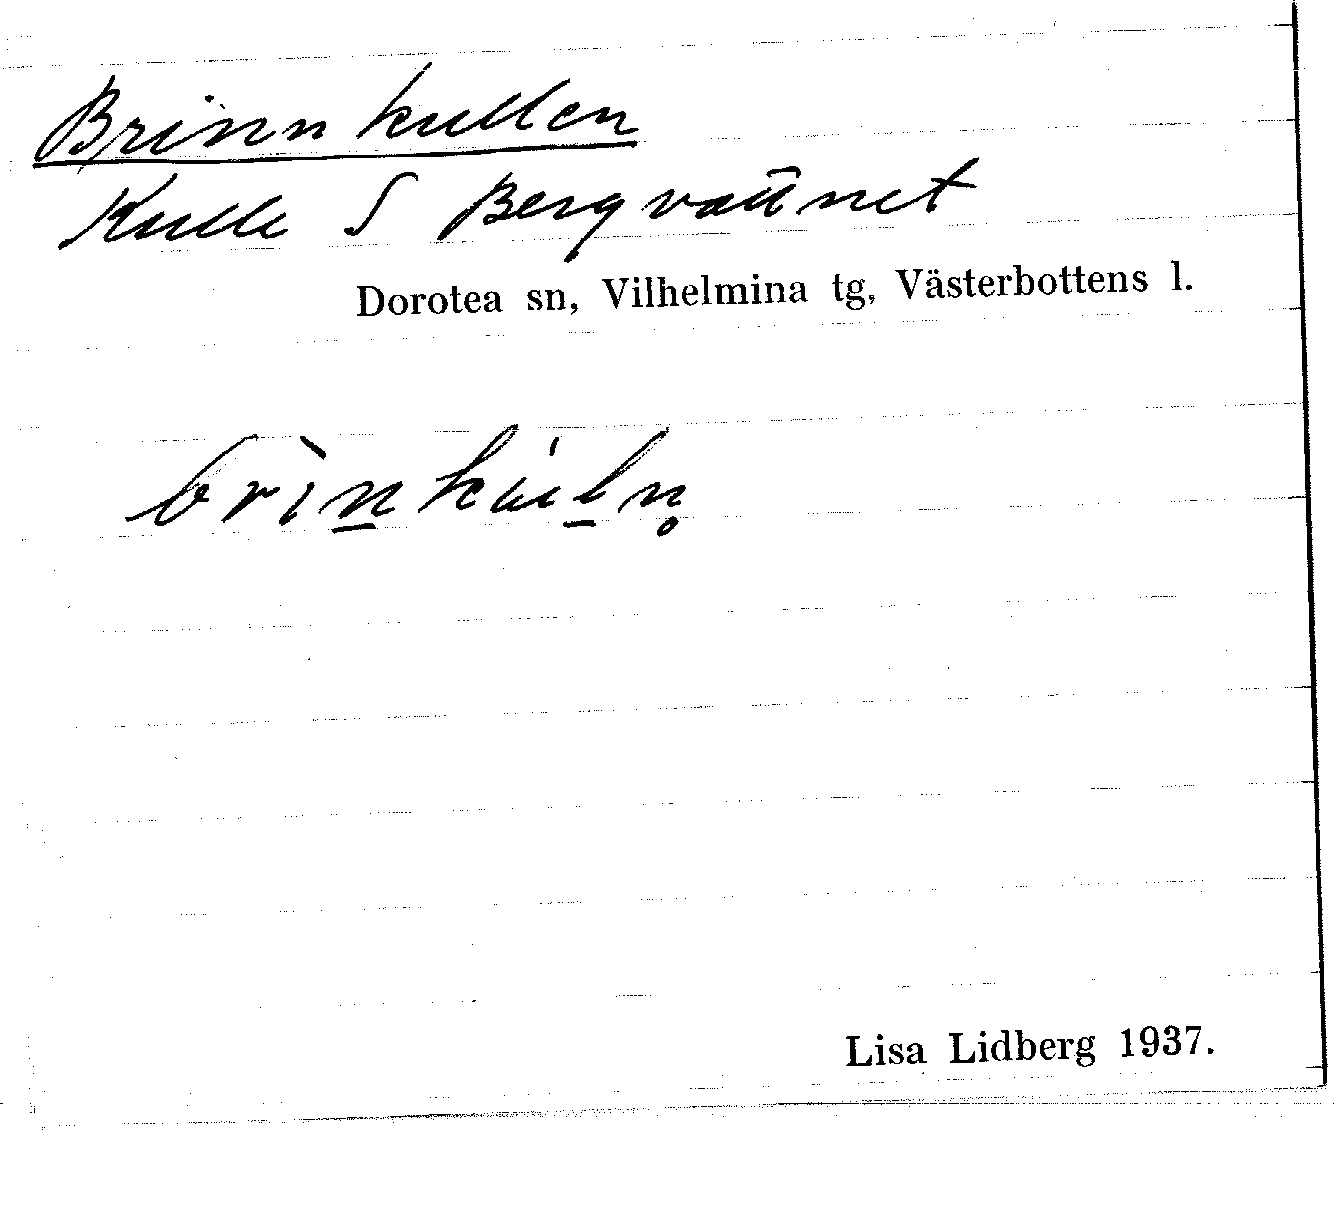 Brinnkullen
Kulle S Bergvattnet
Dorotea sn, Vilhelmina tg, Västerbottens l.
brìn̲kúl̲n̥
Lisa Lidberg 1937.